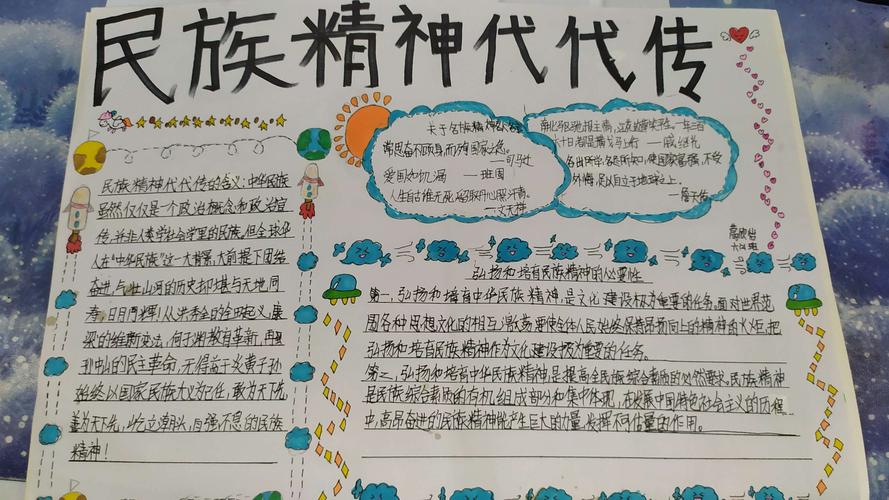 民族精神代代传
民族精神代代传的含义:中华民族
虽然仅仅是一个政治概念和政治宣
传,并非人类学社会学里的民族。但全球华
人在“中华民族”这一大背景,大前提下团结
奋进,与壮山河的历史却堪与天地同
寿,日月同辉!从洪秀全的金田起义,康
梁的维新变法,何于湘教育革新,再
孙中山的民主革命,无得益于炎黄子孙
始终以国家民族大义为己任,敢为天下先
善为天下先,屹立潮头,自强不息的民族
精神!
关于名族精神的名言
常思奋不顾身,而殉国家之急。
——司马迁
爱国如饥渴 ——班固
人生自古谁无死,留取丹心照汗青。
——文天祥
南北驱驰报主情,江花边草笑平生。一年三百
六十日,都是横戈马上行 ——戚继光
各出所学,各尽所知,使国家富强,不受
外侮,足以自立于地球之上。
——詹天佑
六(4)班
弘扬和培育民族精神的必要性
第一,弘扬和培育中华民族精神,是文化建设极为重要的任务。面对世界范
围各种思想文化的相互激荡,要使全体人民始终保持昂扬向上的精神的火炬,把
弘扬和培育民族精神作为文化建设极为重要的任务。
第二,弘扬和培育中华民族精神,是提高全民族综合素质的必然要求。民族精神
是民族综合素质的有机组成部分和集中体现,在发展中国特色社会主义的历程
中,高昂奋进的民族精神能产生巨大的力量,发挥不可估量的作用。